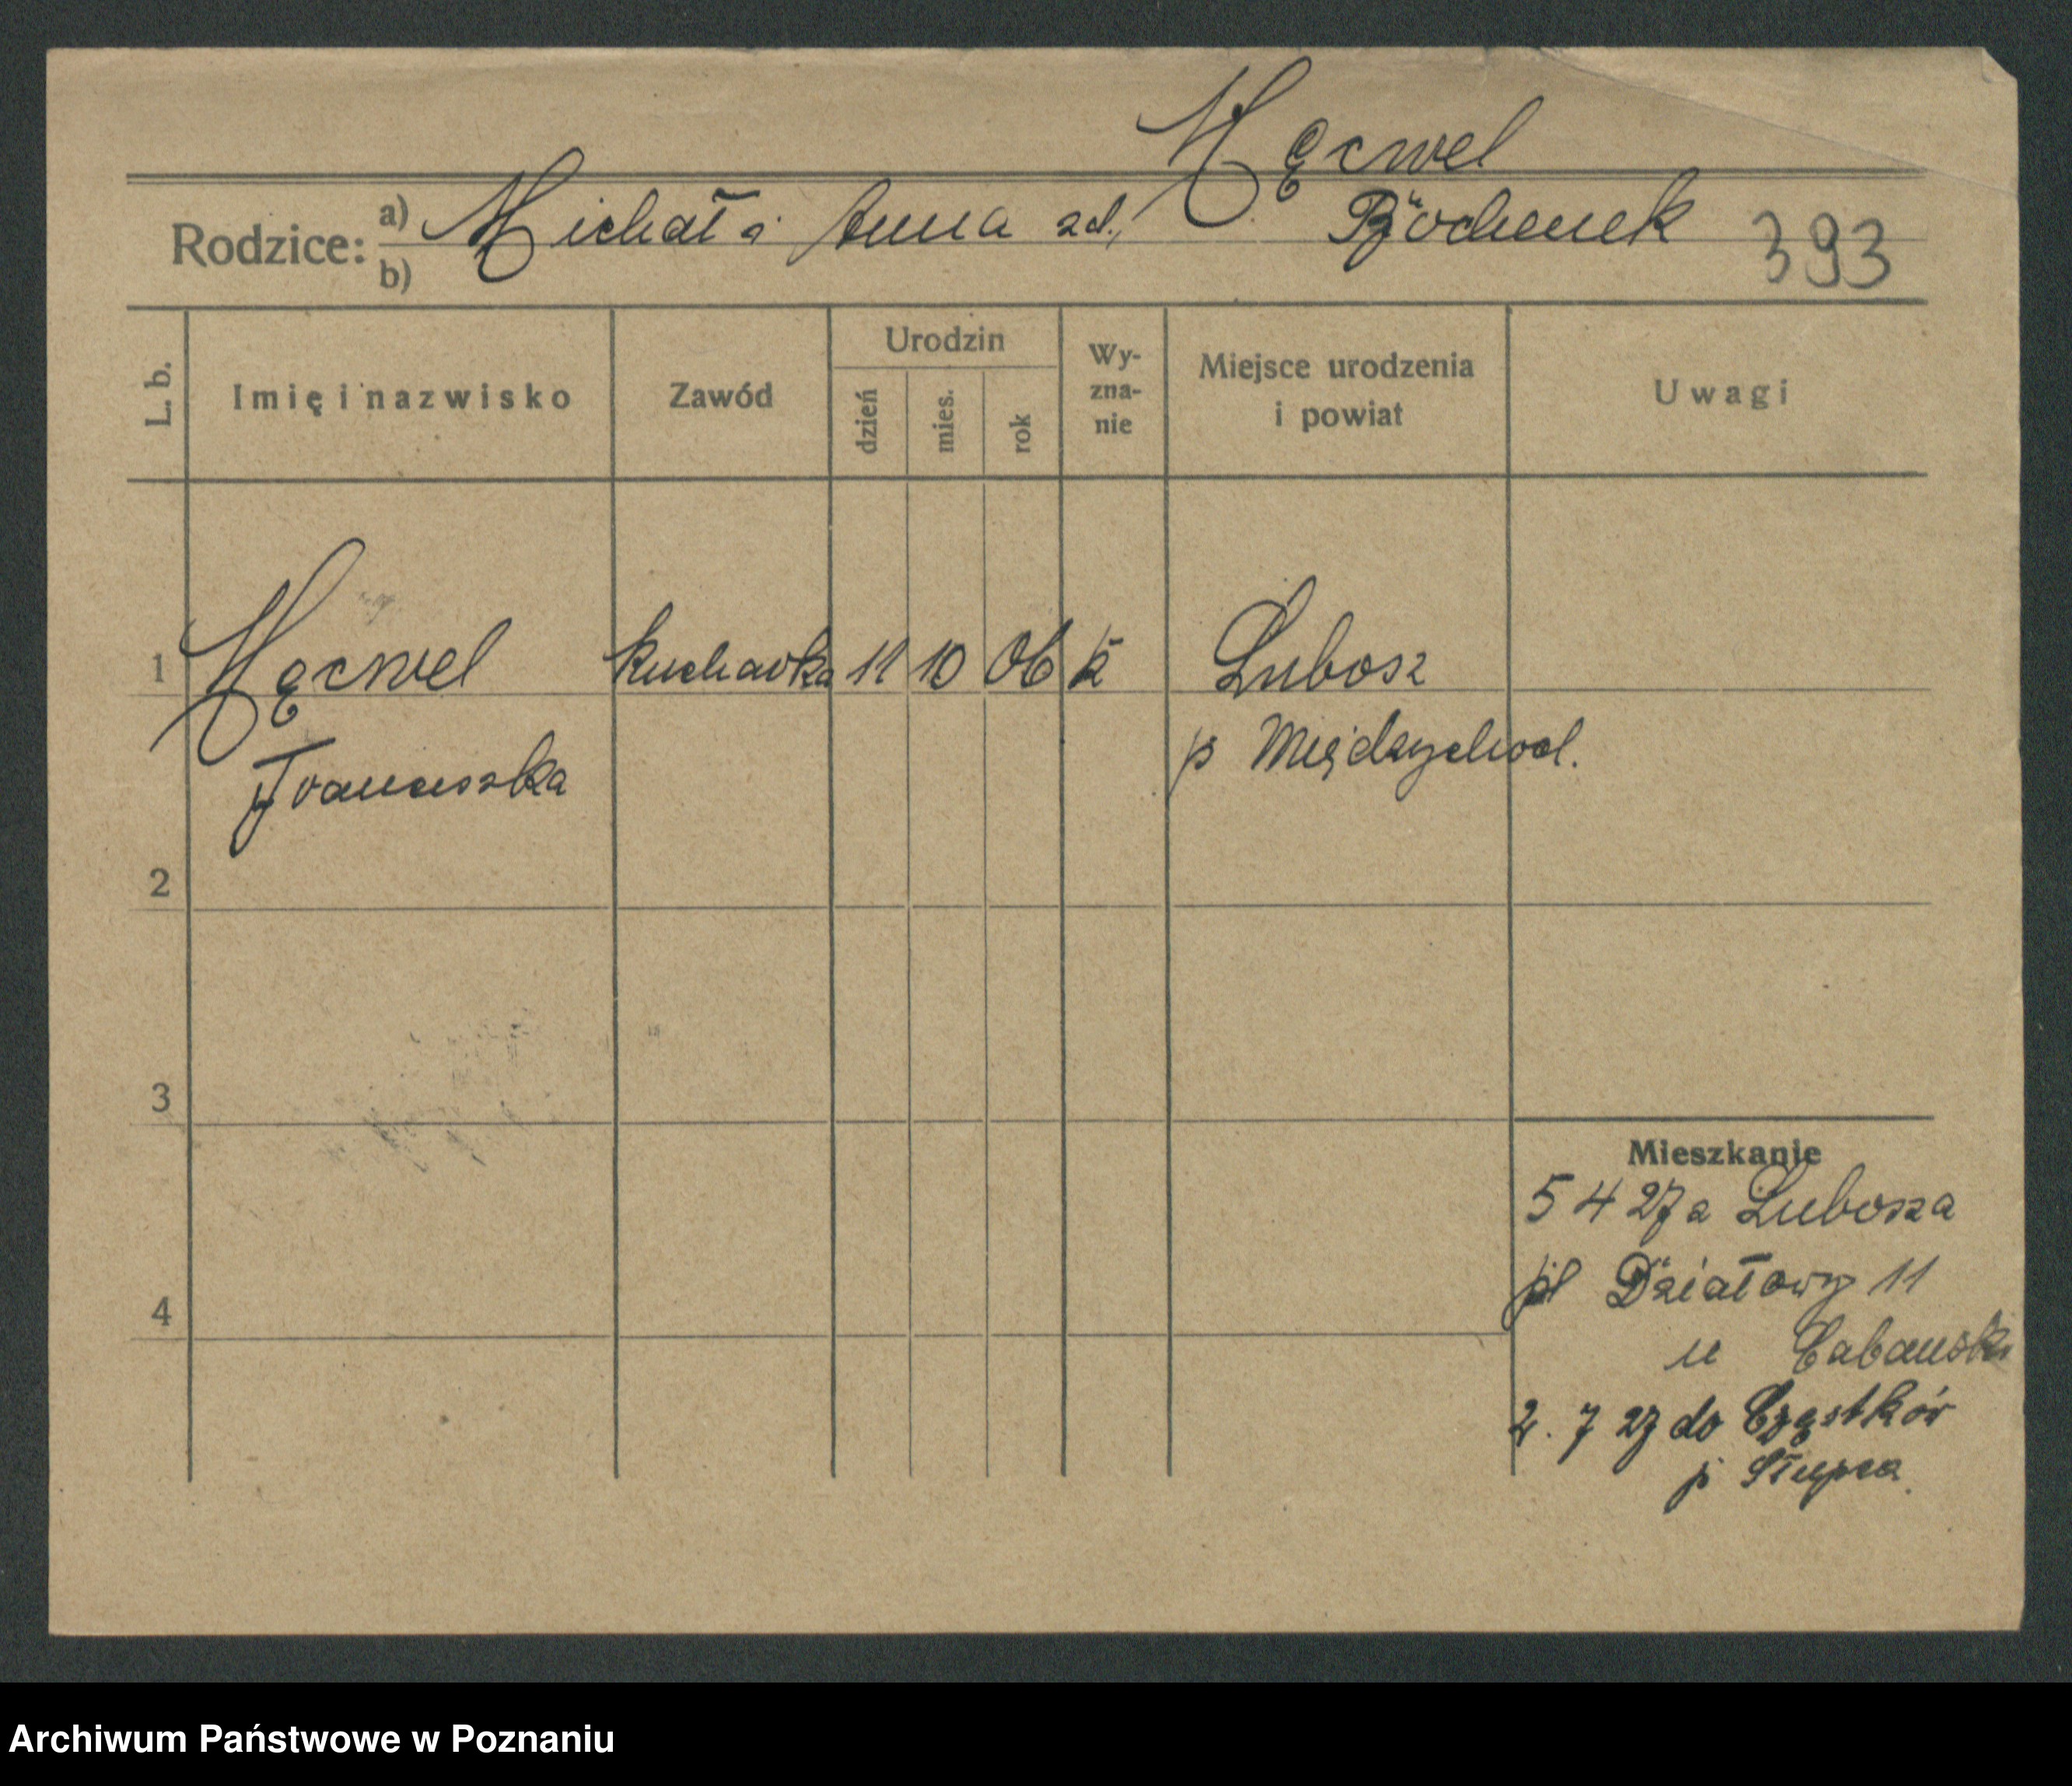 Męcwel
Rodzice: a) Michał i Anna zd., Bochenek 393
b)
L. b. Imię i nazwisko Zawód Urodzin dzień mies. rok Wy-zna-nie Miejsce urodzenia i powiat Uwagi
1 Męcwel kucharka 11 10 06 k Lubosz
Franciszka p Międzychod.
2
3
Mieszkanie
5 4 27 z Lubosza
4 pl Działowy 11
u Cabański
2. 7 27 do Cząstków
p Słupca
Archiwum Państwowe w Poznaniu